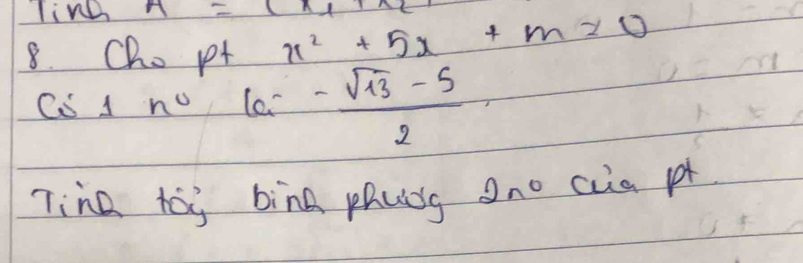 Tính A = (x₁ + x₂
8. Cho pt x² + 5x + m = 0
Có 1 n⁰ là (-√13 - 5)/2.
Tính tổg bình phươg 2n⁰ của pt.